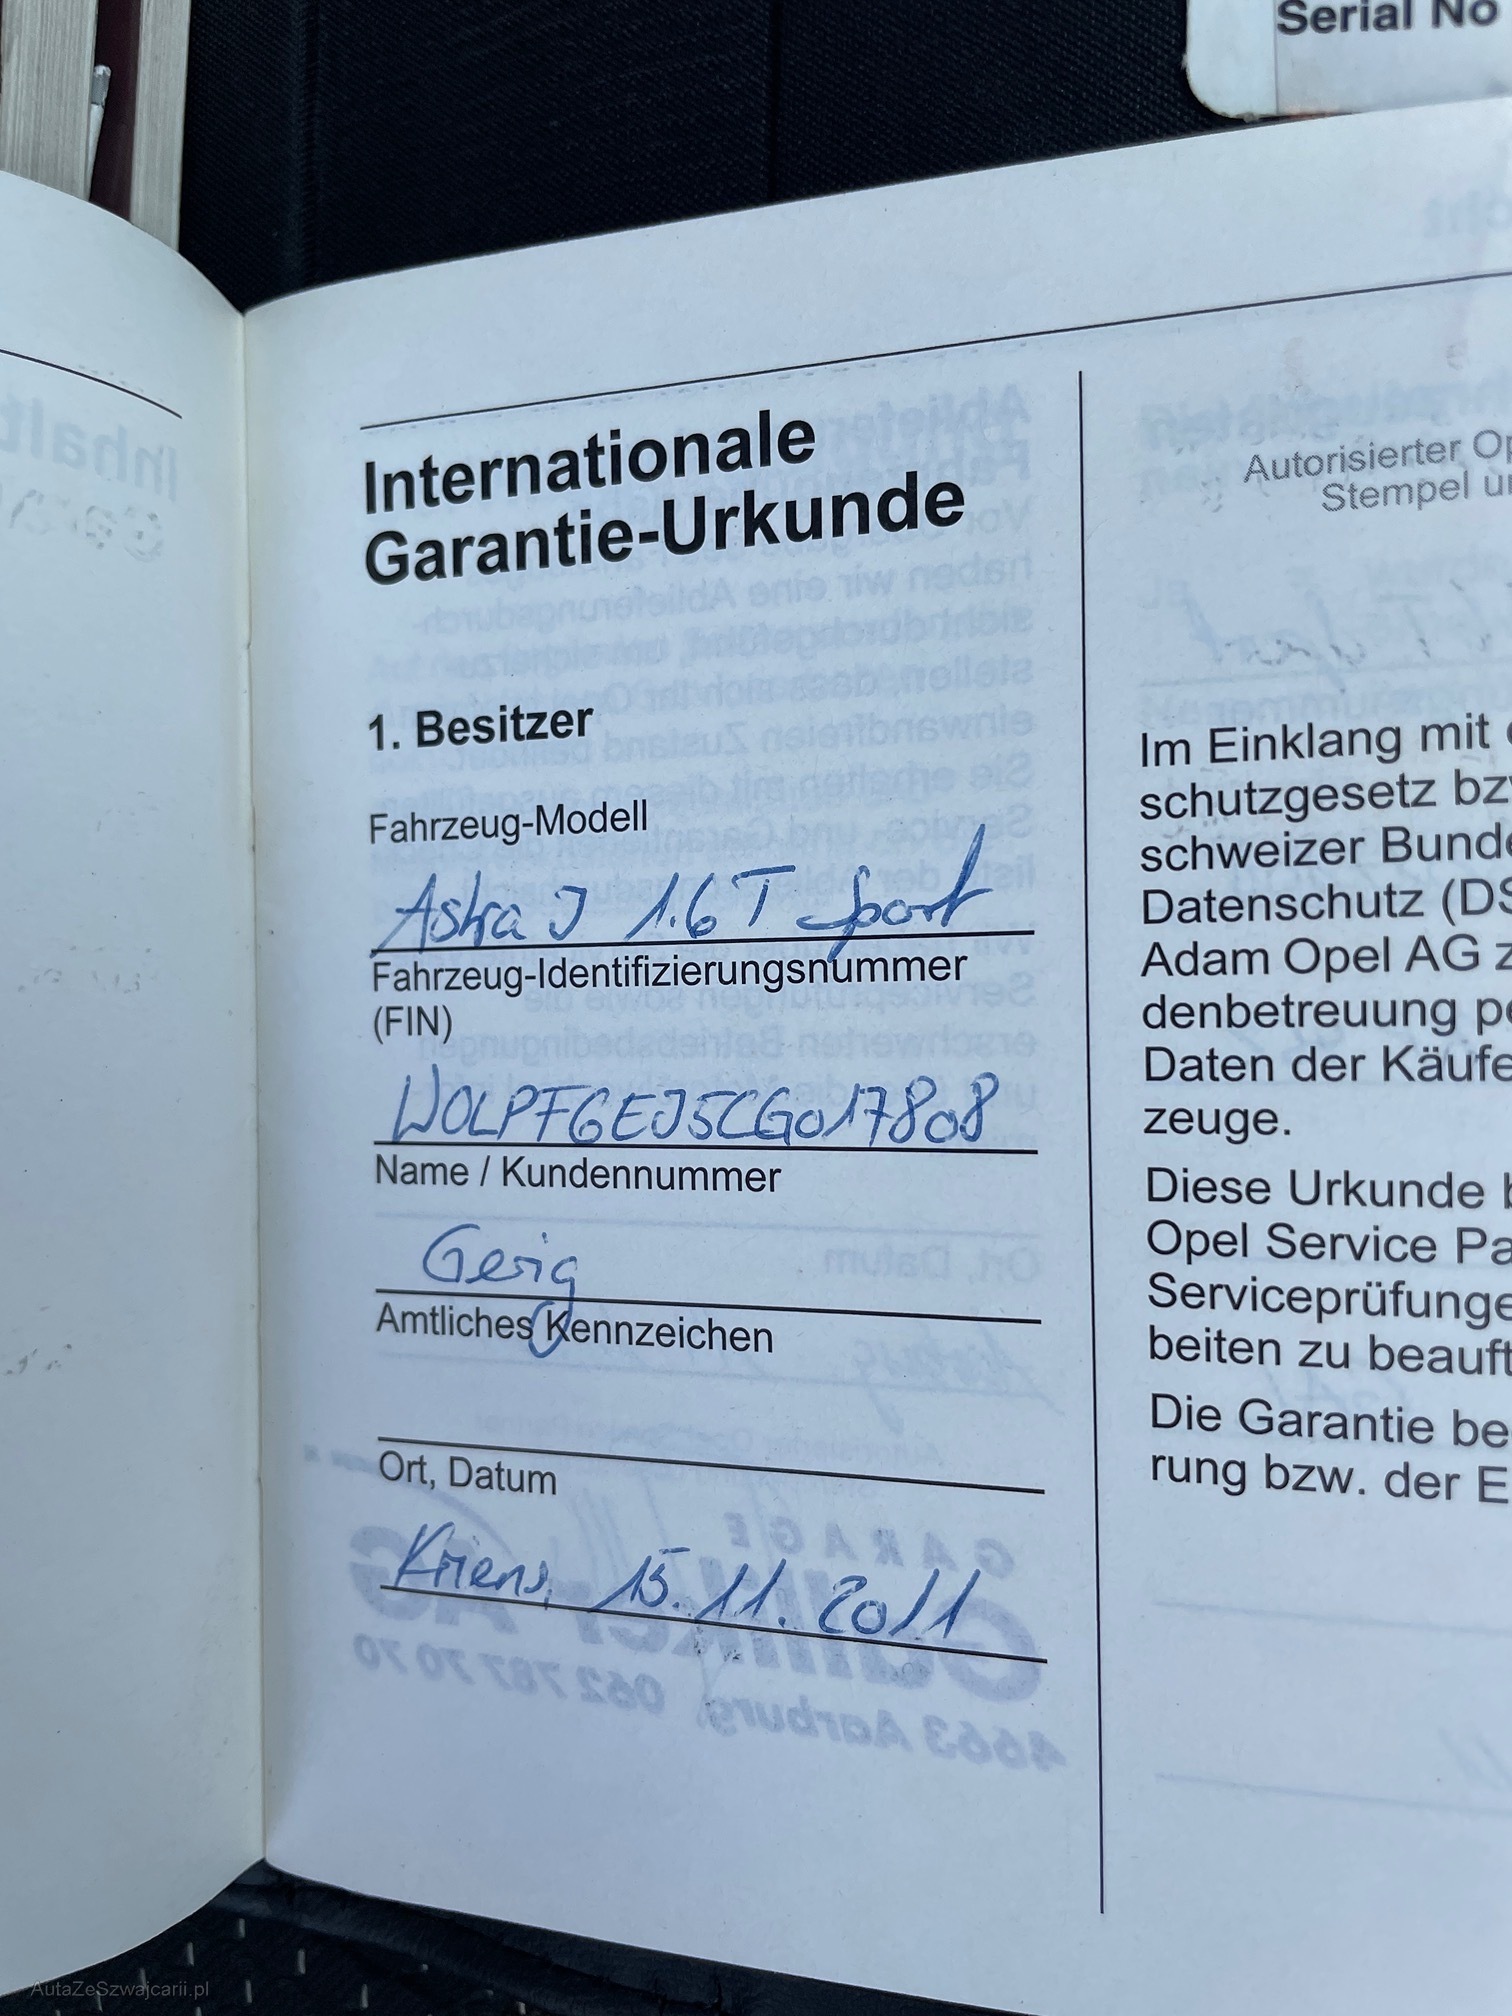 Serial No
Internationale
Garantie-Urkunde
1. Besitzer
Fahrzeug-Modell
Astra J 1.6 T Sport
Fahrzeug-Identifizierungsnummer
(FIN)
W0LPF6EJ5CG017808
Name / Kundennummer
Gerig
Amtliches Kennzeichen
Ort, Datum
Kriens, 15.11.2011
Autorisierter Op
Stempel un
Im Einklang mit
schutzgesetz bzw
schweizer Bunde
Datenschutz (DS
Adam Opel AG z
denbetreuung pe
Daten der Käufe
zeuge.
Diese Urkunde b
Opel Service Pa
Serviceprüfunge
beiten zu beauft
Die Garantie be
rung bzw. der E
AutaZeSzwajcarii.pl